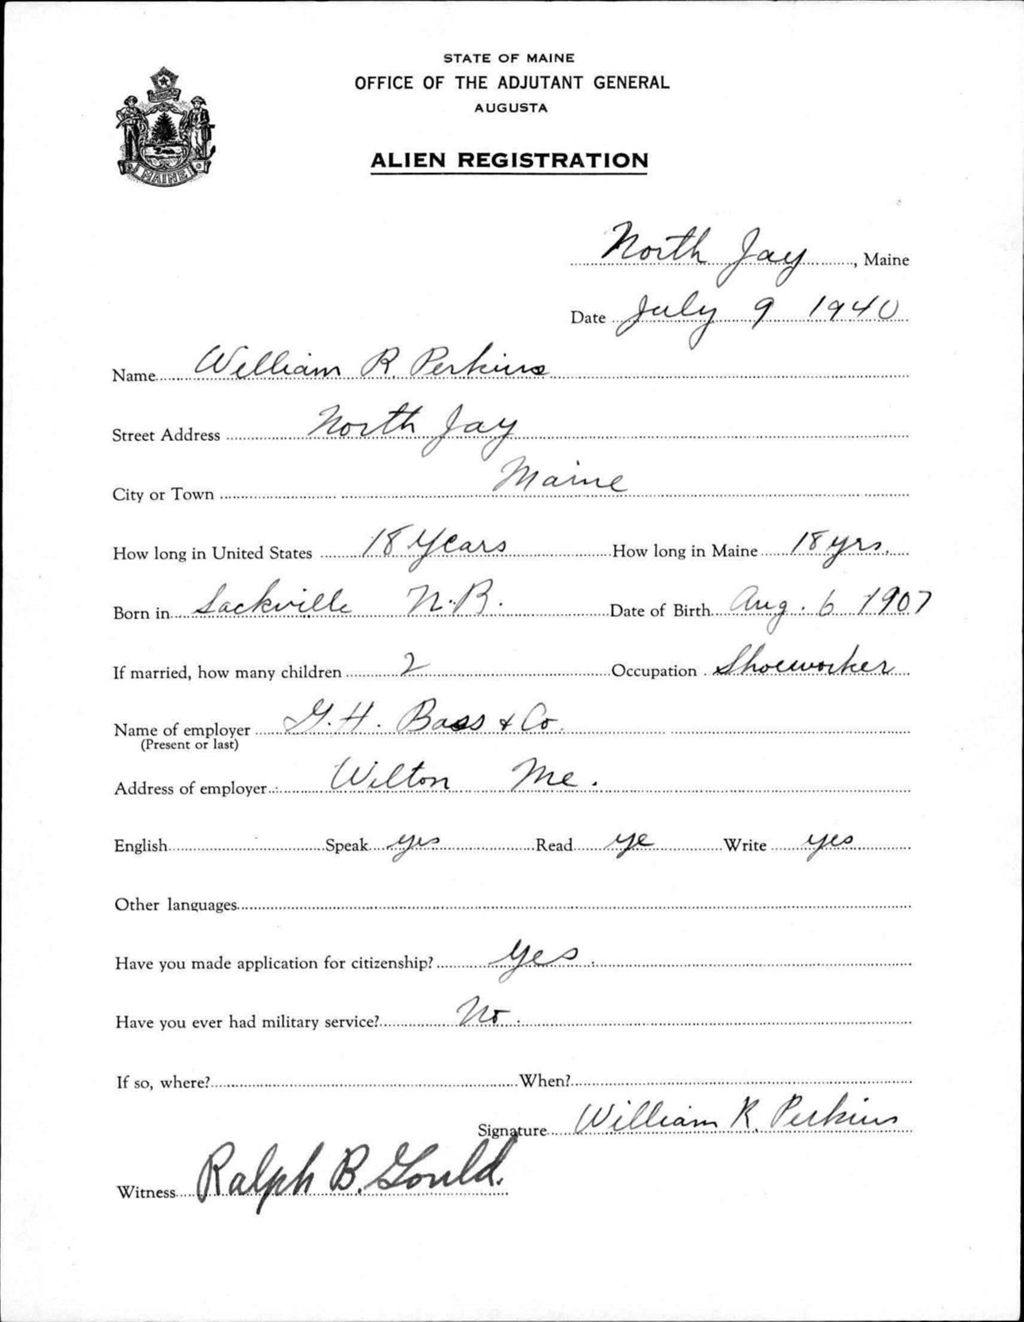 STATE OF MAINE
OFFICE OF THE ADJUTANT GENERAL
AUGUSTA
ALIEN REGISTRATION
MAINE
North Jay, Maine
Date July 9 1940
Name William R. Perkins
Street Address North Jay
City or Town Maine
How long in United States 18 Years How long in Maine 18 yrs.
Born in Sackville N.B. Date of Birth Aug. 6 1907
If married, how many children 2 Occupation Shoeworker
Name of employer G.H. Bass & Co.
(Present or last)
Address of employer Wilton Me.
English Speak yes Read ye Write yes
Other languages
Have you made application for citizenship? Yes.
Have you ever had military service? No.
If so, where? When?
Signature William R. Perkins
Witness Ralph B. Gould.